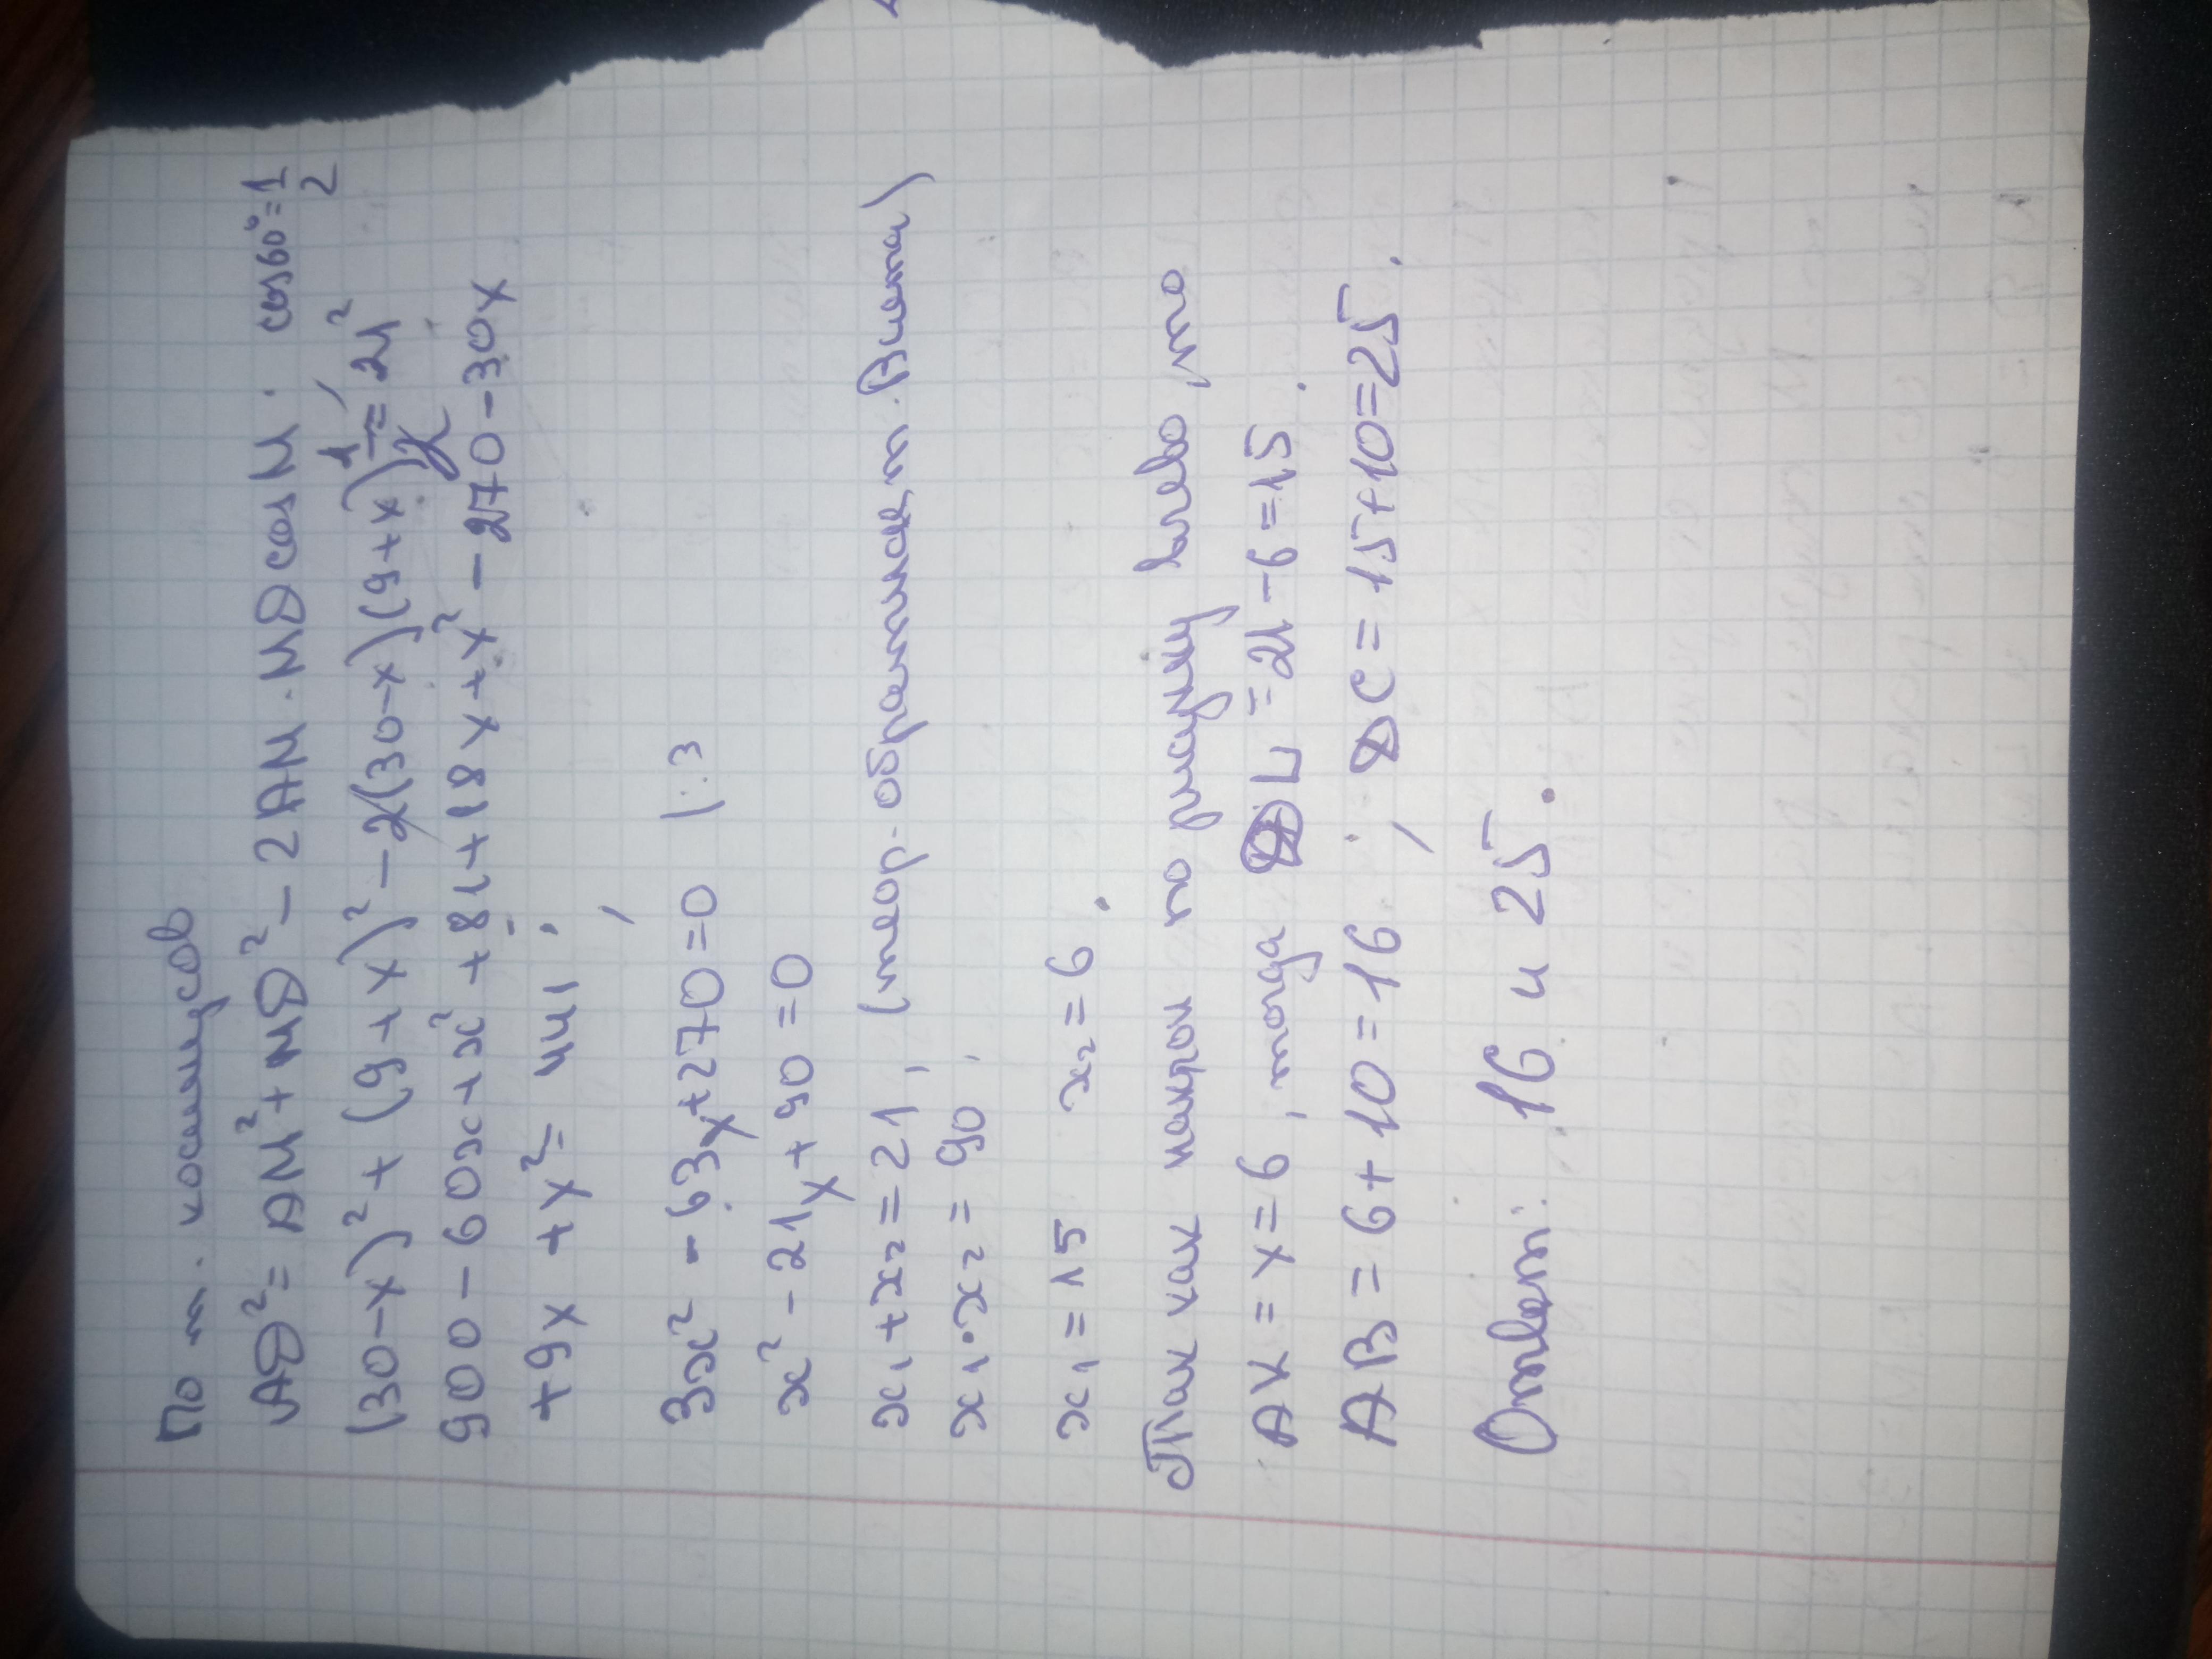 По т. косинусов
AD² = AM² + MD² - 2AM·MD cos M. cos60°=1/2
(30-x)² + (9+x)² - 2(30-x)(9+x)·1/2 = 21²
900 - 60x + x² + 81 + 18x + x² - 270 - 30x
+ 9x + x² = 441 ;
3x² - 63x + 270 = 0 | :3
x² - 21x + 90 = 0
x₁ + x₂ = 21, (теор. обратная т. Виета)
x₁ · x₂ = 90,
x₁ = 15 x₂ = 6.
Так как наклон по рисунку влево, то
AK = x = 6, тогда DL = 21 - 6 = 15.
AB = 6 + 10 = 16 ; DC = 15 + 10 = 25.
Ответ: 16 и 25.